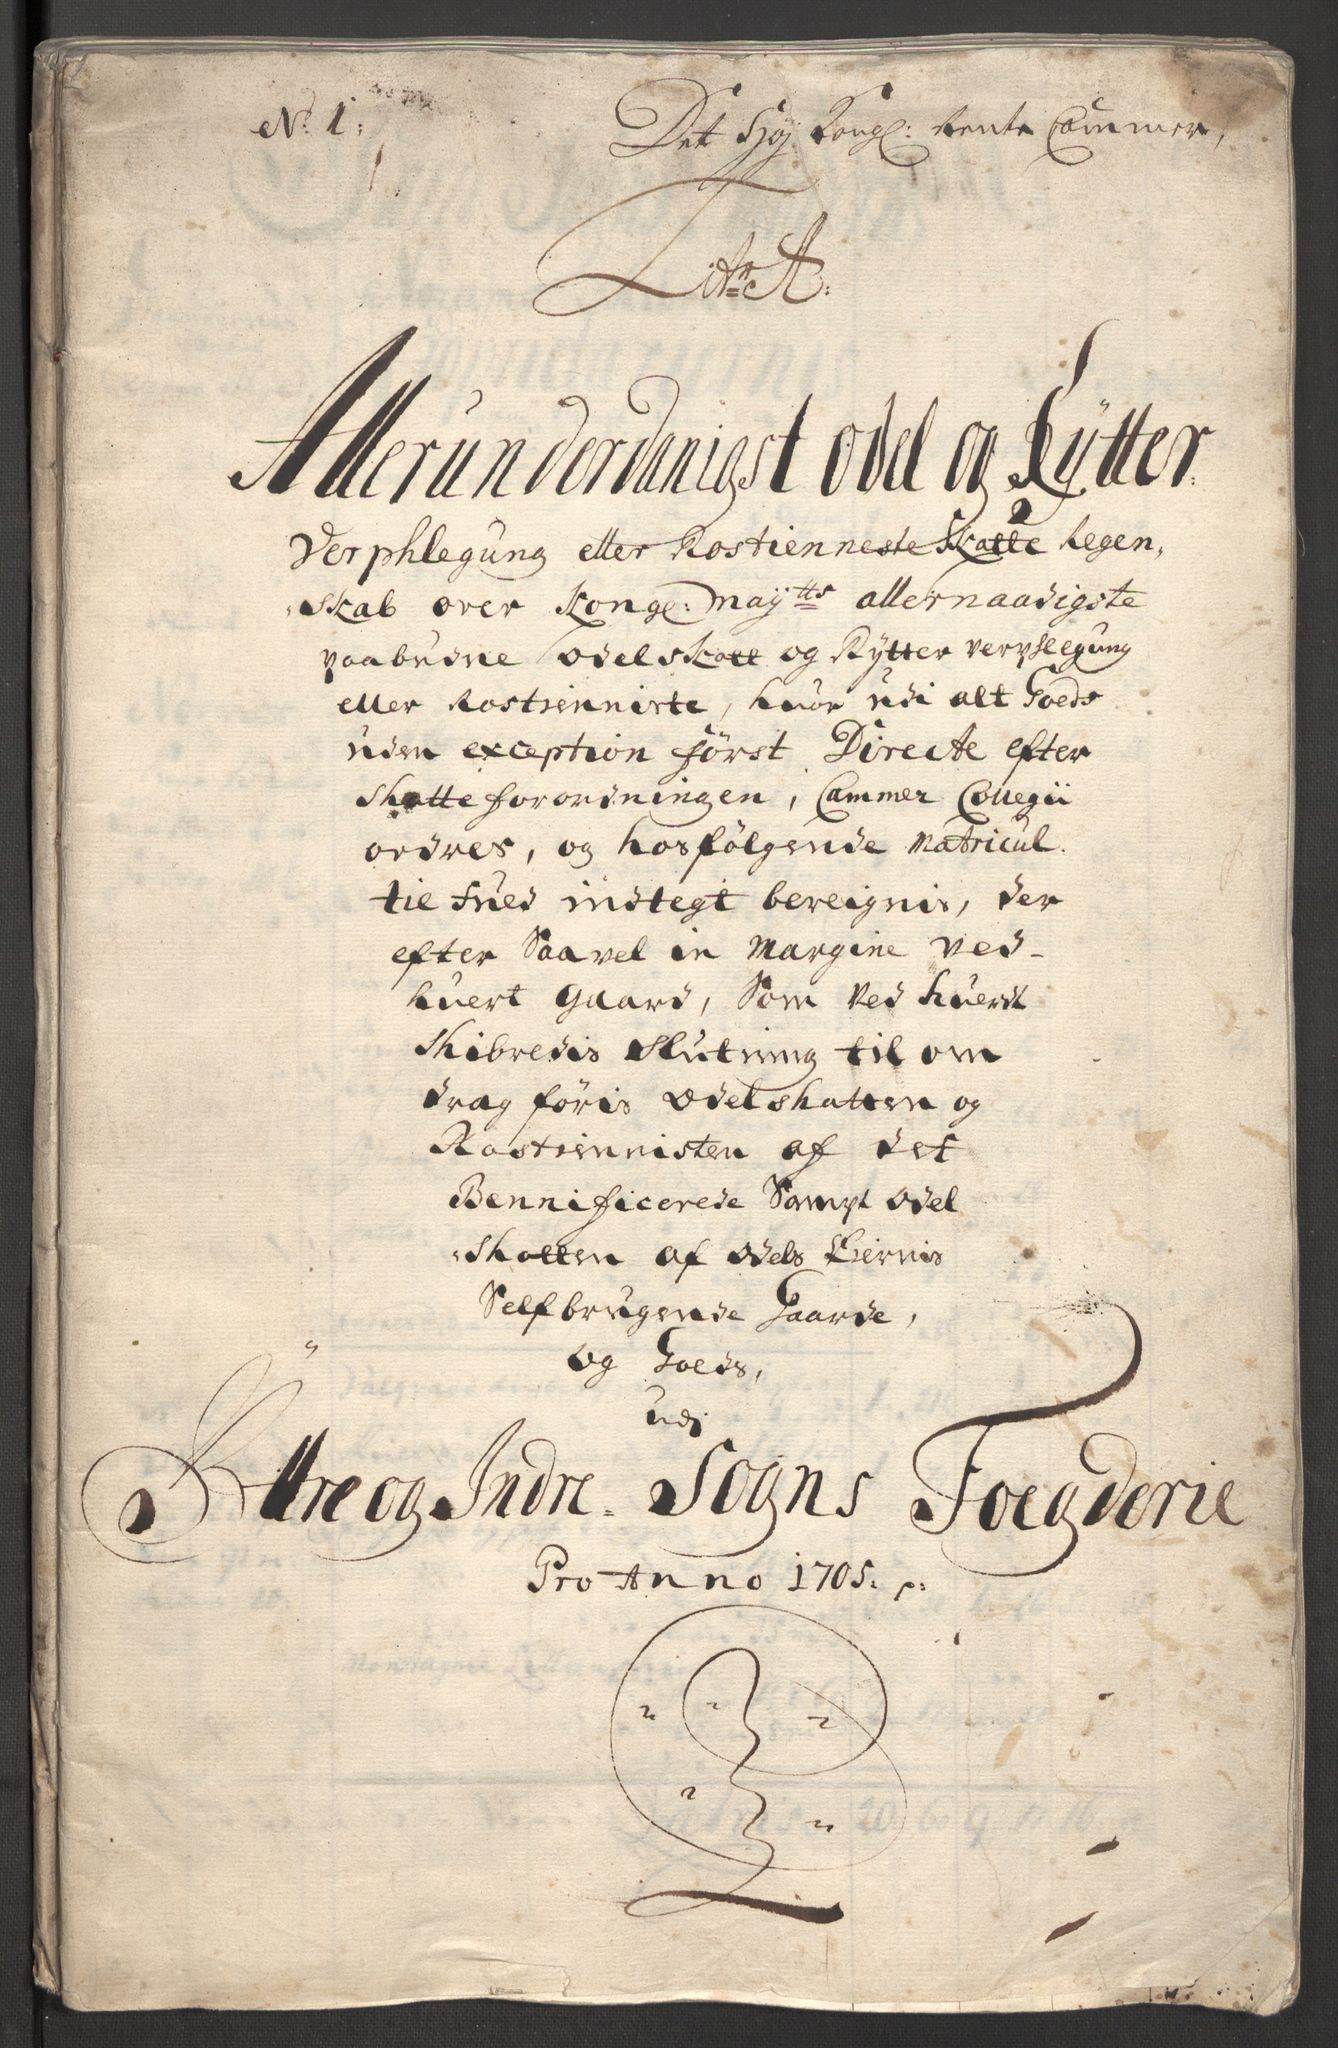 No 1:
Det Høj Kongl: Rente Cammer,
Litra A:
Allerunderdanigst Odel og Rÿtter
Verphlegung eller Rostienneste Skatte Regen,
skab over Kongl: Maÿtts allernaadigste
paabudne Odelskatt og Rÿtter verphlegung
eller Rostienniste, huor udi alt Goeds
uden exception først Directe efter
Skatteforordningen, Cammer Collegii
ordres, og hosfølgende Matricul
til fued indtegt bereignis, der
efter Saavel in Margine ved
huert gaard, Som Ved huerdt
Skibredis Slutning til om
drag føris Odelskatten og
Rostiennisten af det
Bennificerede Sampt Odel
skatten af Odels Eiernis
Selfbrugende Gaarde,
og Goeds,
udj
Ÿttre og Indre Sogns Foegderie
Pro Anno 1705.